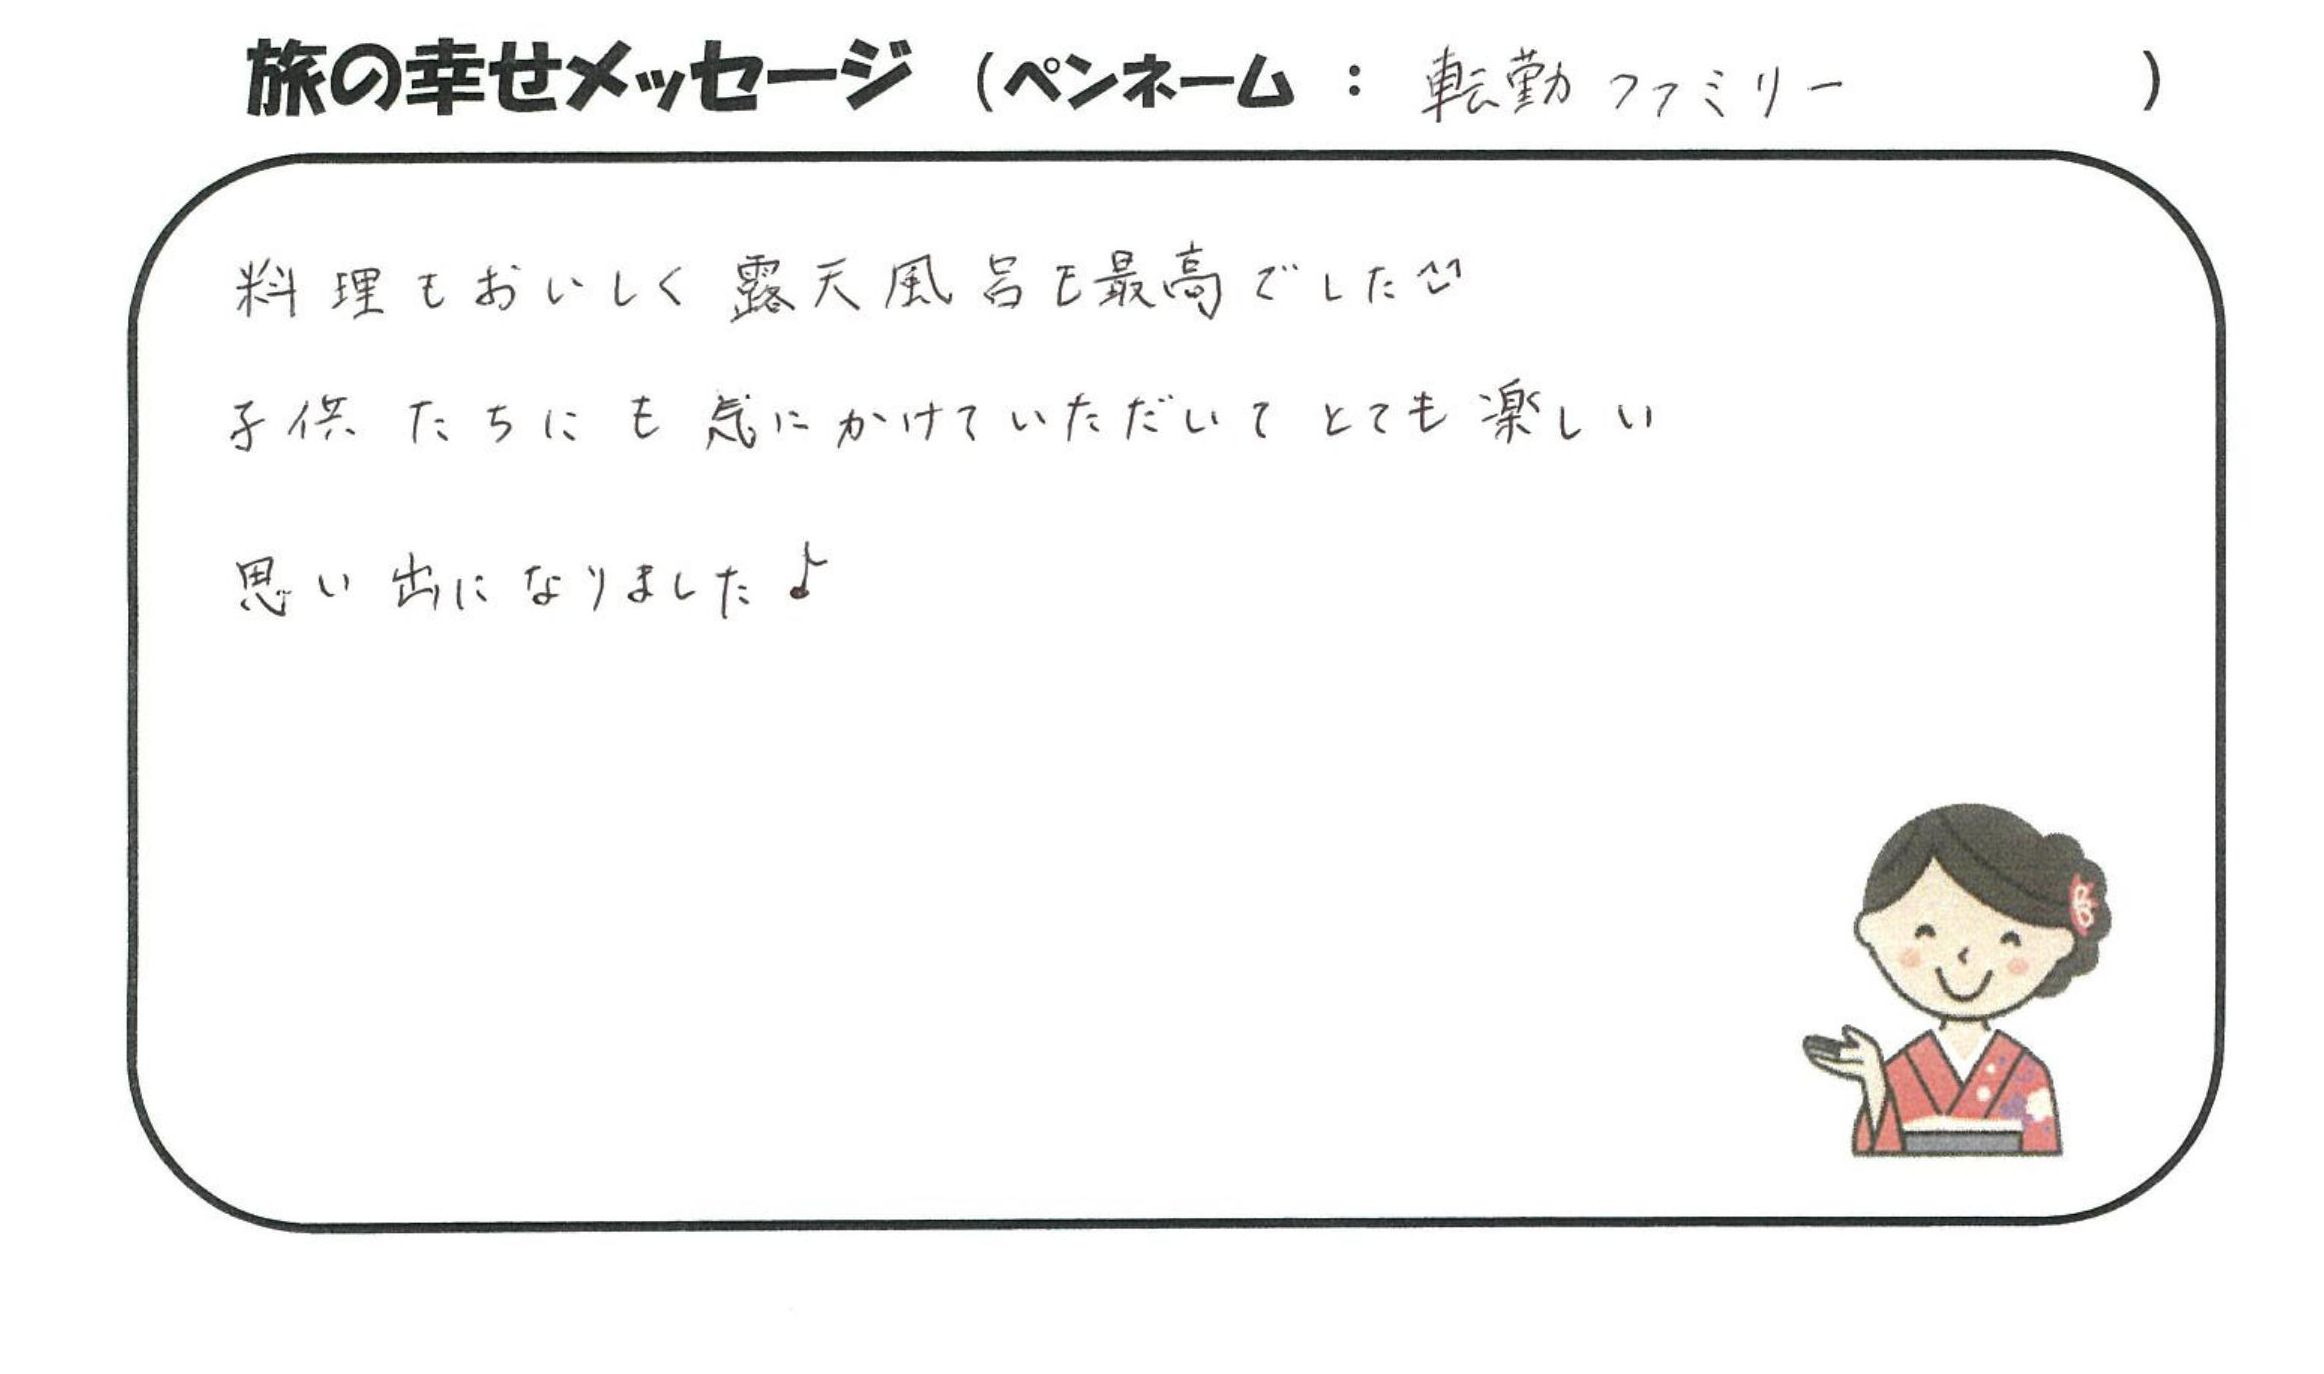 旅の幸せメッセージ（ペンネーム：転勤ファミリー）
料理もおいしく露天風呂も最高でした^^
子供たちにも気にかけていただいてとても楽しい
思い出になりました♪